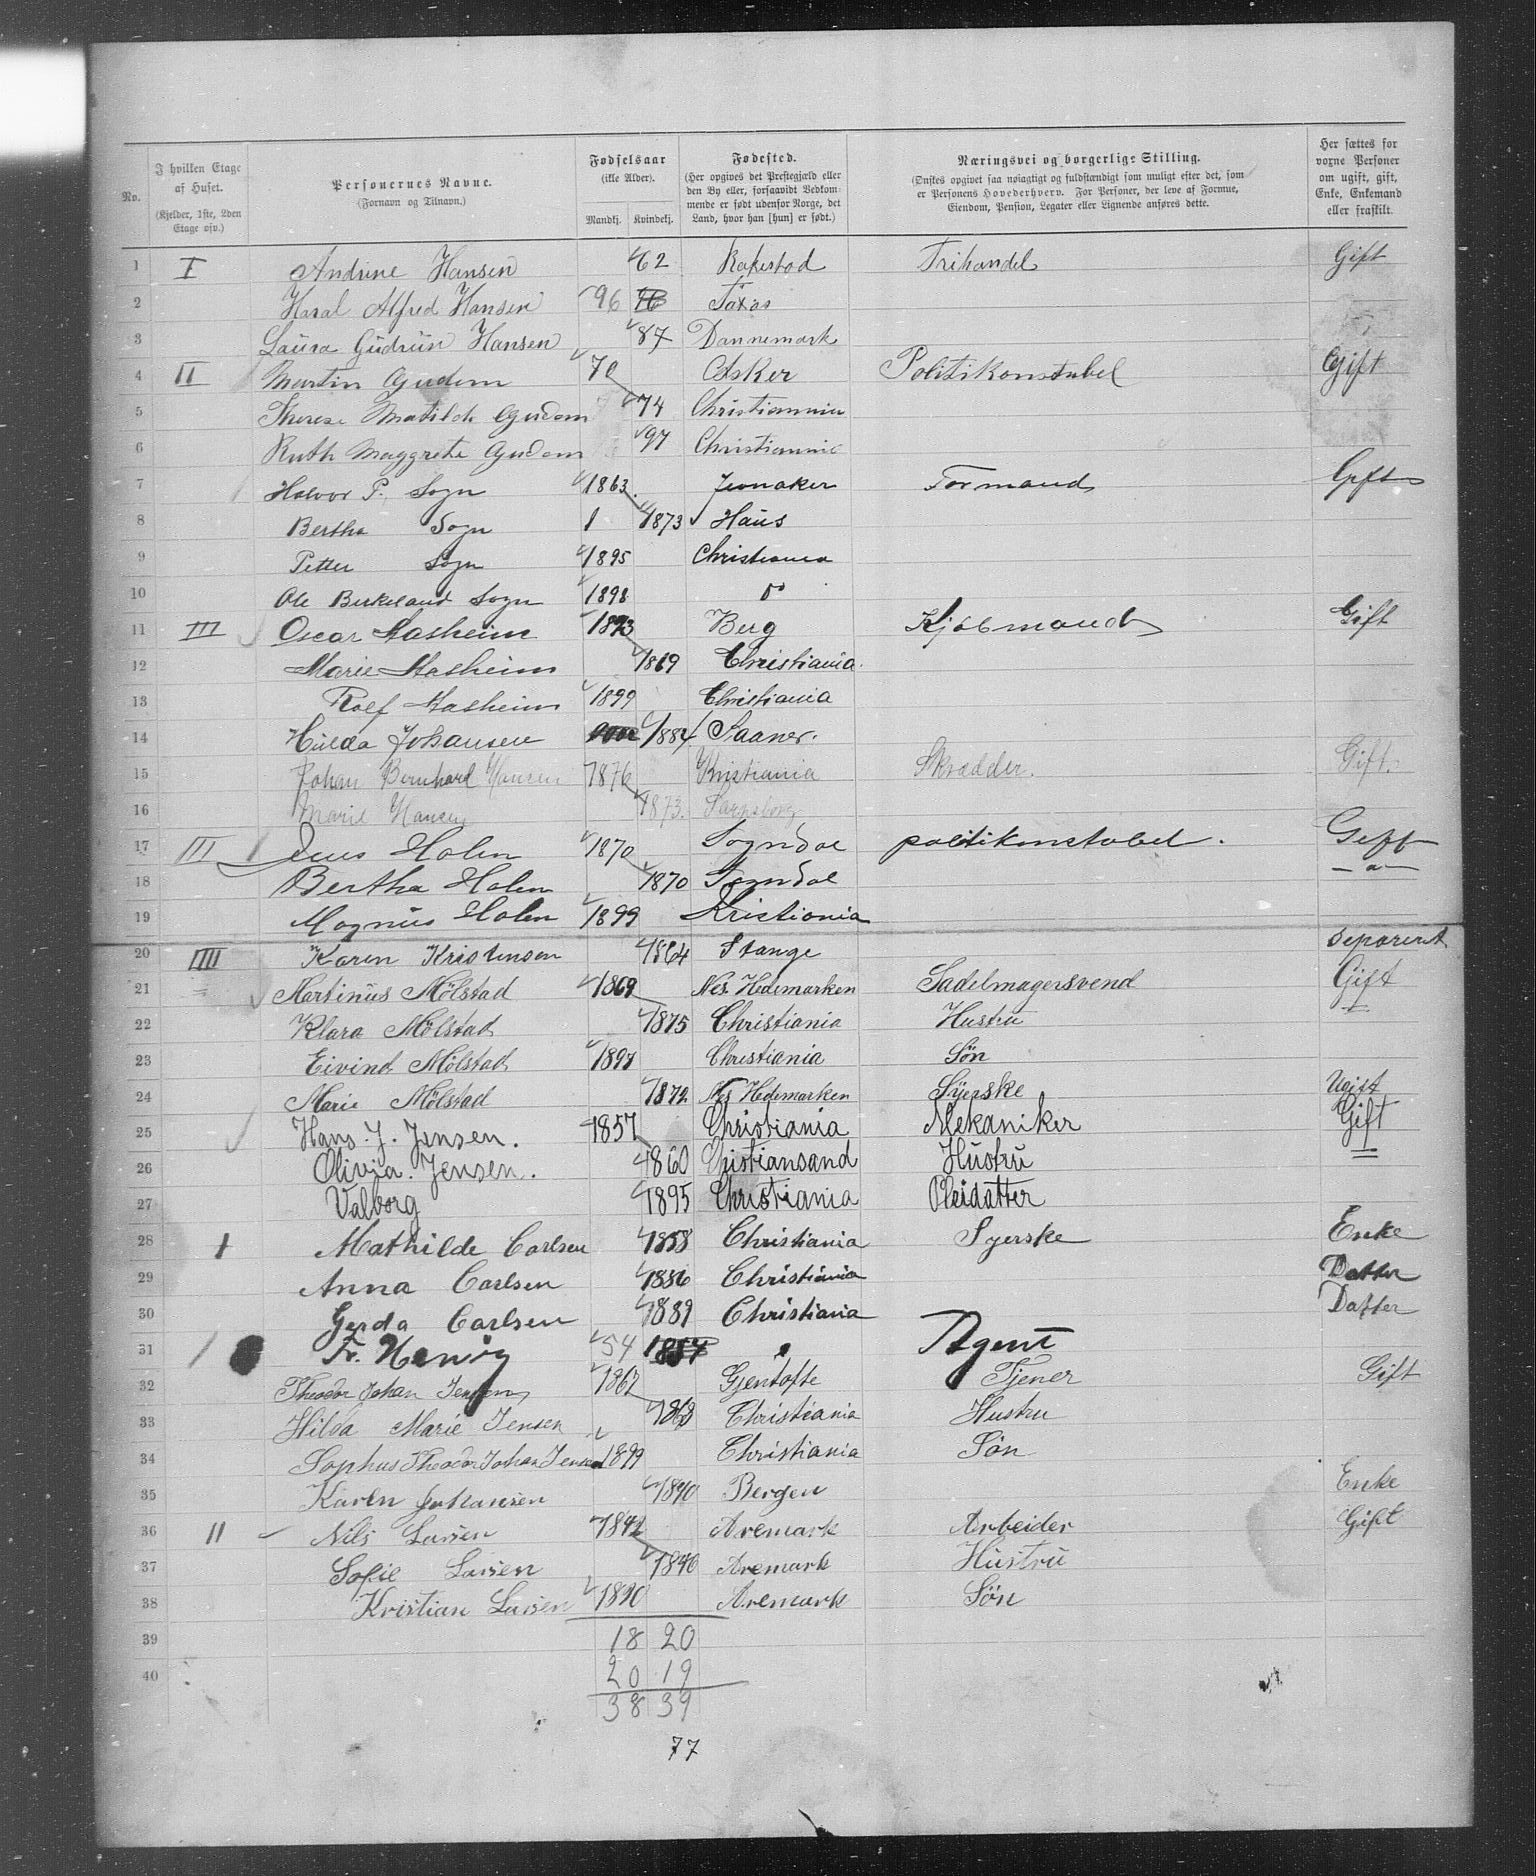 No. | I hvilken Etage af Huset. (Kjelder, 1ste, 2den Etage osv.) | Personernes Navne. (Fornavn og Tilnavn.) | Fødselsaar (ikke Alder). Mandkj. Kvindekj. | Fødested. (Her opgives det Prestegjæld eller den By eller, forsaavidt Vedkommende er født udenfor Norge, det Land, hvor han [hun] er født.) | Næringsvei og borgerlige Stilling. (Ønskes opgivet saa nøiagtigt og fuldstændigt som muligt efter det, som er Personens Hovederhverv. For Personer, der leve af Formue, Eiendom, Pension, Legater eller Lignende anføres dette. | Her sættes for voxne Personer om ugift, gift, Enke, Enkemand eller fraskilt.
1 I Andrine Hansen 62 Rakestad Frihandel Gift
2 Haral Alfred Hansen 96 Taxas
3 Laura Gudrun Hansen 87 Dannemark
4 II Martin Gudem 70 Asker Politikonstabel Gift
5 Therese Matilde Gudom 74 Christiannia
6 Ruth Maggrete Gudom 97 Christiannia
7 Halvor P. Sogn 1863 Jevnaker Formand Gift
8 Bertha Sogn 1 1873 Haus
9 Petter Sogn 1895 Christiania
10 Ole Birkeland Sogn 1898 do
11 III Oscar Aasheim 1873 Berg Kjøbmand Gift
12 Marie Aasheim 1869 Christiania.
13 Rolf Aasheim 1899 Christiania
14 Hulda Johansen 1884 Saaner.
15 Johan Bernhard Hansen 1876 Kristiania Skrædder. Gift.
16 Marie Hansen 1873. Sarpsborg
17 III Jens Holen 1870 Sogndal politikonstabel. Gift
18 Bertha Holen 1870 Sogndal - " -
19 Magnus Holen 1899 Kristiania
20 IIII Karen Kristensen 1864 Stange Separeret
21 Martinus Mölstad 1869 Nes. Hedemarken Sadelmagersvend Gift
22 Klara Mölstad 1875 Christiania Hustru "
23 Eivind Mölstad 1897 Christiania Søn
24 Marie Mölstad 1872 Nes Hedemarken Syerske Ugift
25 Hans. J. Jensen. 1857 Christiania Mekaniker Gift
26 Olivia. Jensen. 1860 Chistiansand Hustru =
27 Valborg 1895 Christiania Pleidatter
28 1 Mathilde Carlsen 1858 Christiania Syerske Enke
29 Anna Carlsen 1886 Christiania Datter
30 Gerda Carlsen 1889 Christiania Datter
31 Fr. 54 1854 " Agent
32 Theodor Johan Jensen 1867 Gjentofte Tjener Gift
33 Hilda Marie Jensen 1868 Christiania Hustru
34 Sophus Theodor Johan Jensen 1899 Christiania Søn
35 Karen Johansen 1840 Bergen Enke
36 11 Nils Larsen 1842 Aremark Arbeider Gift
37 Sofie Larsen 1846 Aremark Hustru
38 Kristian Larsen 1890 Aremark Søn
39 18 20
40 20 19
38 39
77